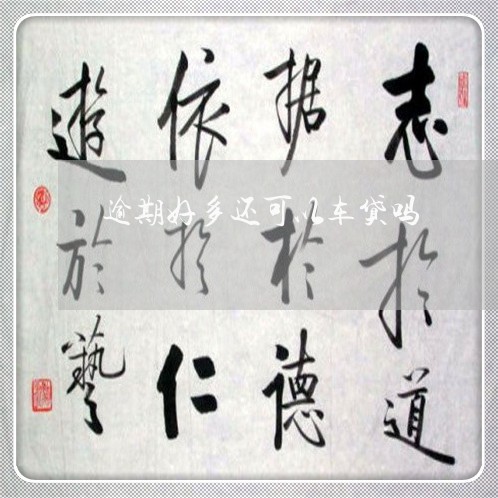 志扵道
据扵德
依扵仁
遊於藝
逾期好多还可以车贷吗